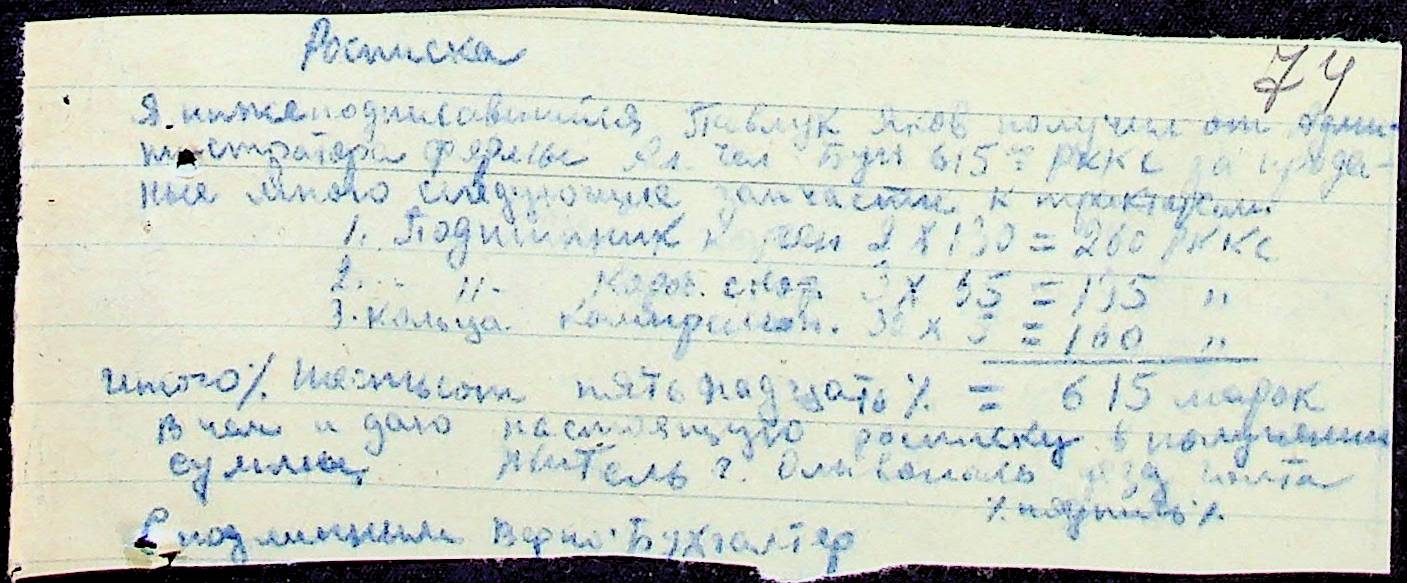 Росписка
74
Я. нижеподписавшийся Павлук Яков получил от Адми-
нистратора фермы Ял. Чел Бут 615 = РККС за прода-
ные мною следующие запчасти к тракторам
1. Подшипник корен 2 х 130 = 260 РККС
2. " " 3 х = "
3. Кольца компрессон. х 5 = "
Итого % шестьсот пятьнадцать % = 615 марок
В чем и даю настоящую росписку в получении
суммы Житель г. Ольвиополь
% подпись %
С подлинным верно: Бухгалтер